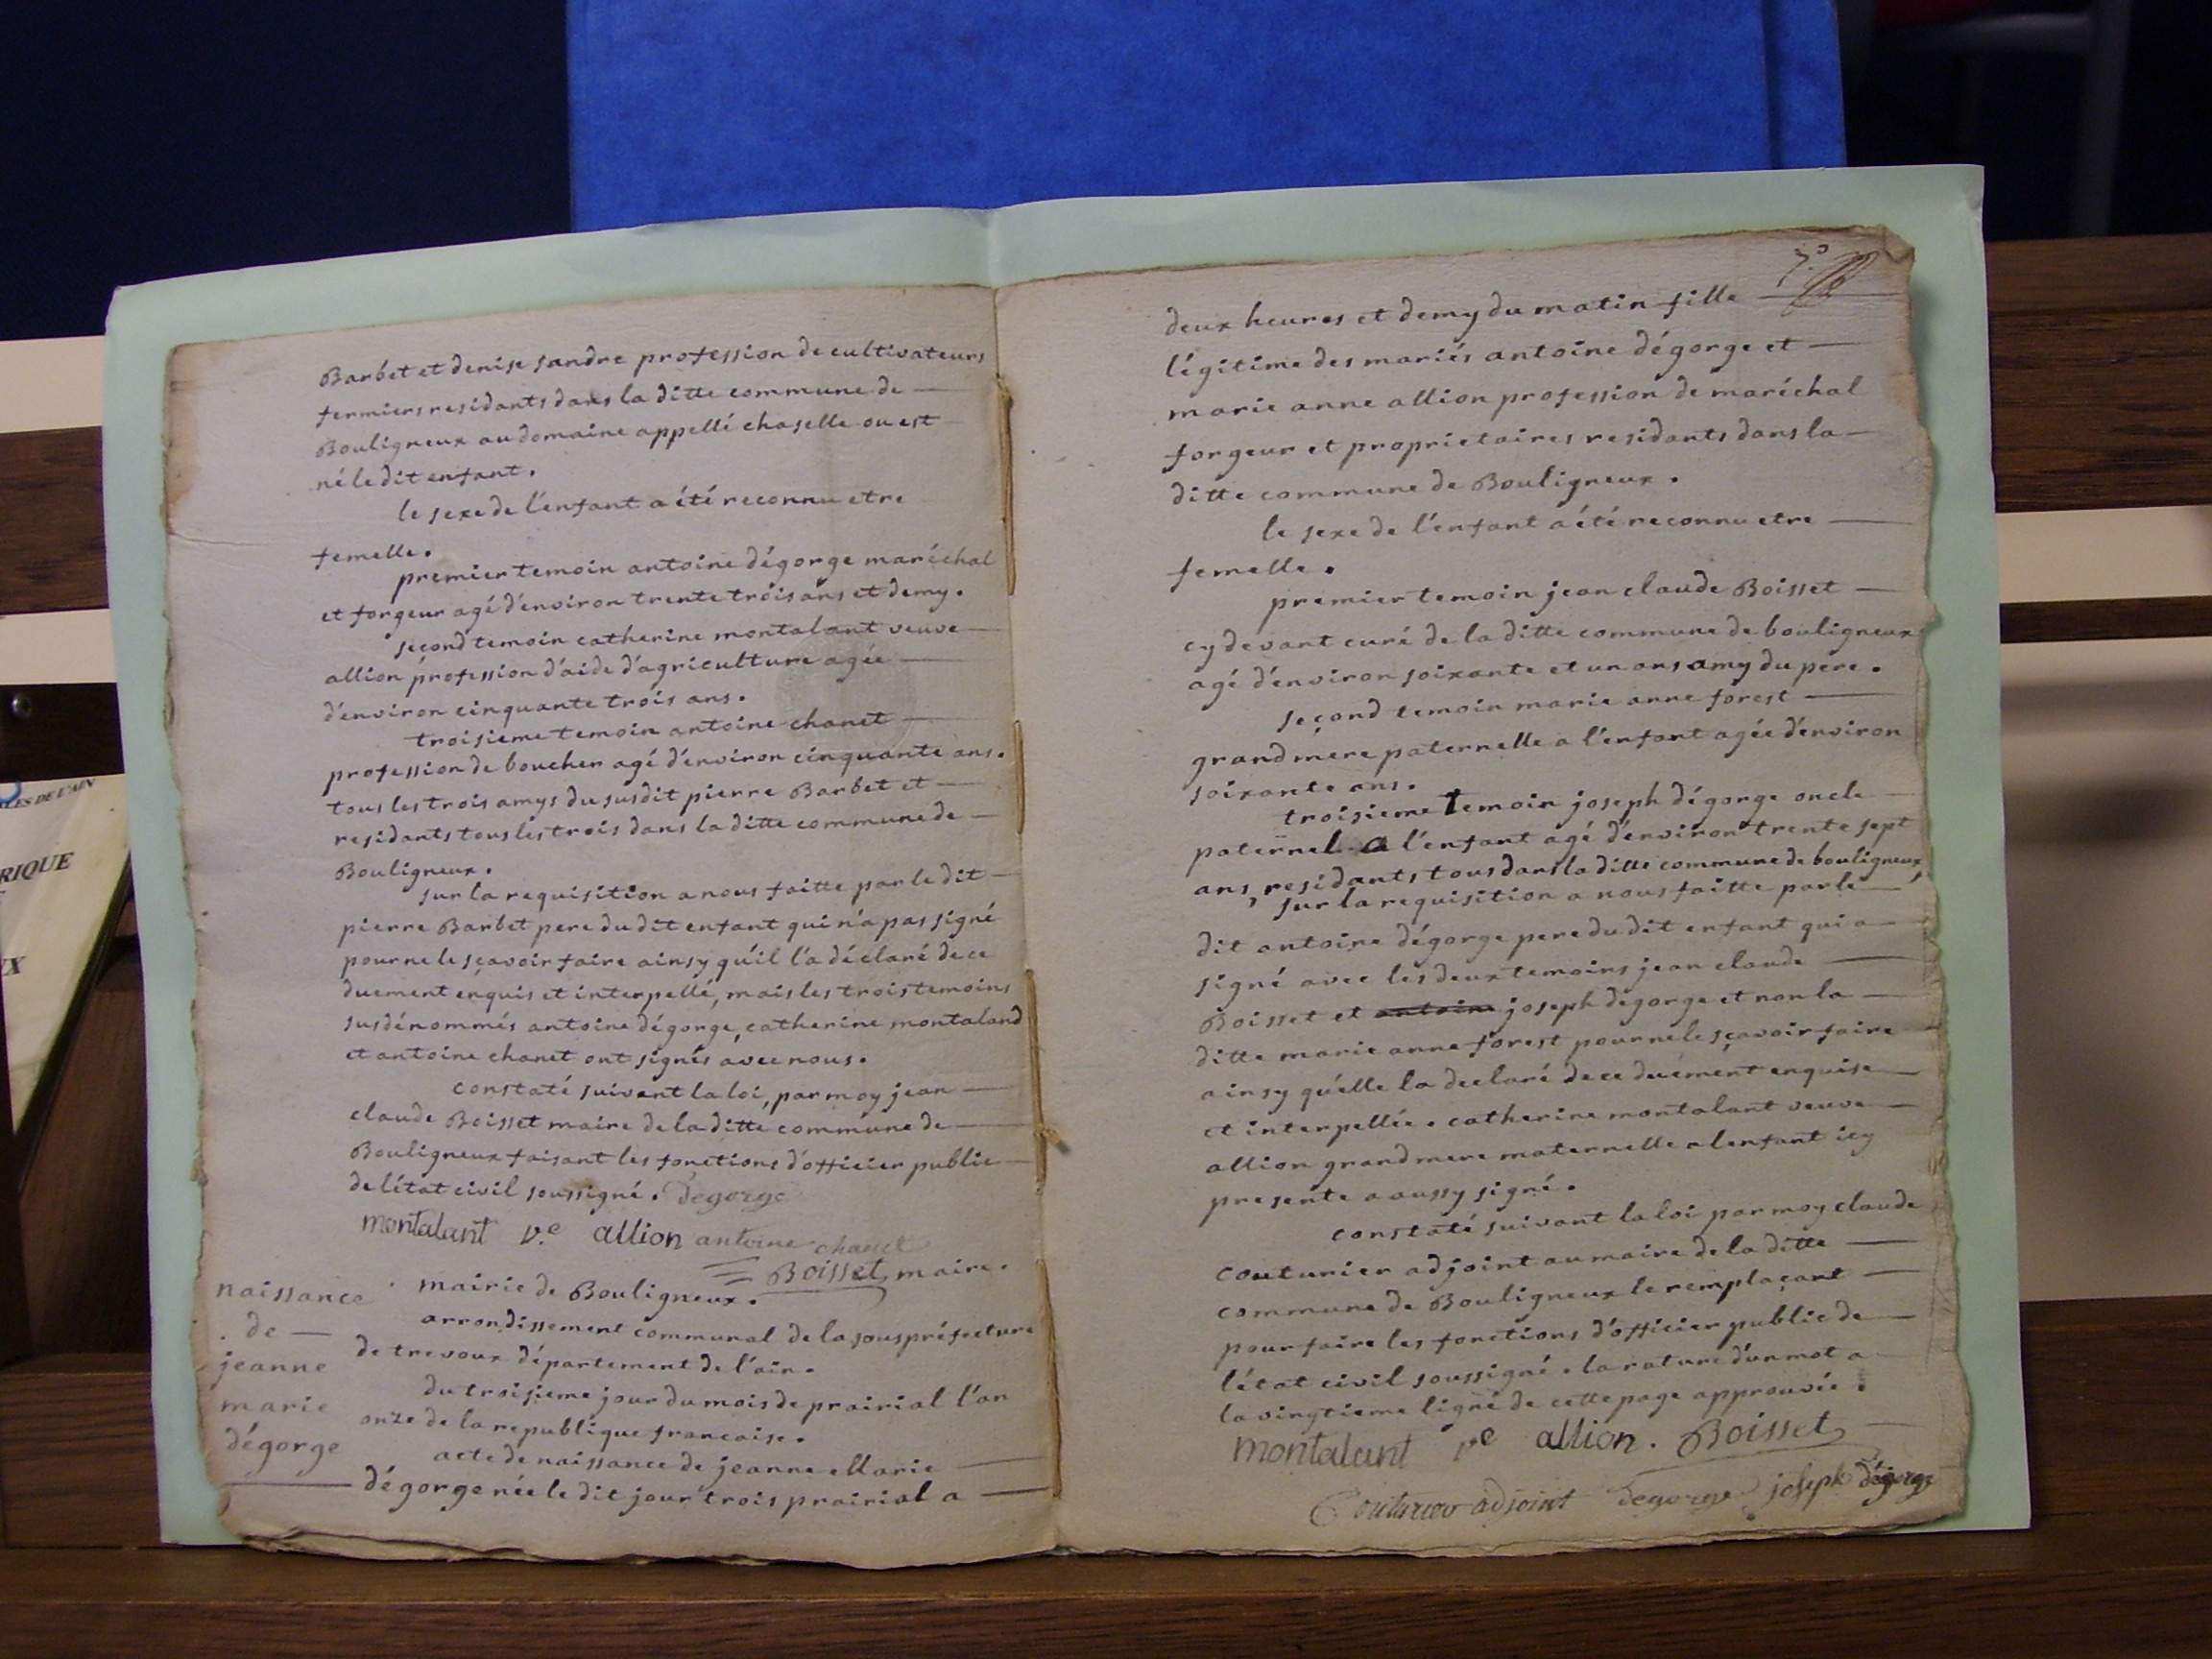 Barbet et denise sandre profession de cultivateurs
fermiers residants dans la ditte commune de
Bouligneux au domaine appellé chaselle ou est
né le dit enfant.
le sexe de l'enfant a été reconnu etre
femelle.
premier temoin antoine dégorge maréchal
et forgeur agé d'environ trente trois ans et demy.
second temoin catherine montalant veuve
allion profession d'aide d'agriculture agée
d'environ cinquante trois ans.
troisieme temoin antoine chanet
profession de boucher agé d'environ cinquante ans.
tous les trois amys du susdit pierre Barbet et
residants tous les trois dans la ditte commune de
Bouligneux.
sur la requisition a nous faitte par le dit
pierre Barbet pere du dit enfant qui n'a pas signé
pour ne le sçavoir faire ainsy qu'il l'a déclaré de ce
duement enquis et interpellé, mais les trois temoins
susdénommés antoine dégorge, catherine montaland
et antoine chanet ont signés avec nous.
constaté suivant la loi, par moy jean
claude Boisset maire de la ditte commune de
Bouligneux faisant les fonctions d'officier public
de l'état civil soussigné. degorge
montalant v.e allion antoine chanet
Boisset maire.
naissance
de
jeanne
marie
dégorge
mairie de Bouligneux.
arrondissement communal de la souspréfecture
de trevoux département de l'ain.
du troisieme jour du mois de prairial l'an
onze de la republique francaise.
acte de naissance de jeanne Marie
dégorge née le dit jour trois prairial a
deux heures et demy du matin fille
légitime des mariés antoine dégorge et
marie anne allion profession de maréchal
forgeur et proprietaires residants dans la
ditte commune de Bouligneux.
le sexe de l'enfant a été reconnu etre
femelle.
premier temoin jean claude Boisset
cy devant curé de la ditte commune de bouligneux
agé d'environ soixante et un ans amy du pere.
second temoin marie anne forest
grand mere paternelle a l'enfant agée d'environ
soixante ans.
troisieme temoin joseph dégorge oncle
paternel a l'enfant agé d'environ trente sept
ans, residants tous dans la ditte commune de bouligneux,
sur la requisition a nous faitte par le
dit antoine dégorge pere du dit enfant qui a
signé avec les deux temoins jean claude
Boisset et antoine joseph dégorge et non la
ditte marie anne forest pour ne le sçavoir faire
ainsy qu'elle la declaré de ce duément enquise
et interpellée. catherine montalant veuve
allion grand mere maternelle a lenfant icy
presente a aussy signé.
constaté suivant la loi par moy claude
couturier adjoint au maire de la ditte
commune de Bouligneux le remplaçant
pour faire les fonctions d'officier public de
l'état civil soussigné. la rature d'un mot a
la vingtieme ligne de cette page approuvée.
montalant ve allion. Boisset
Couturier adjoint degorge joseph dégorge
RIQUE